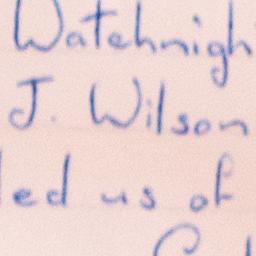 Watchnigh
J. Wilson
led us of